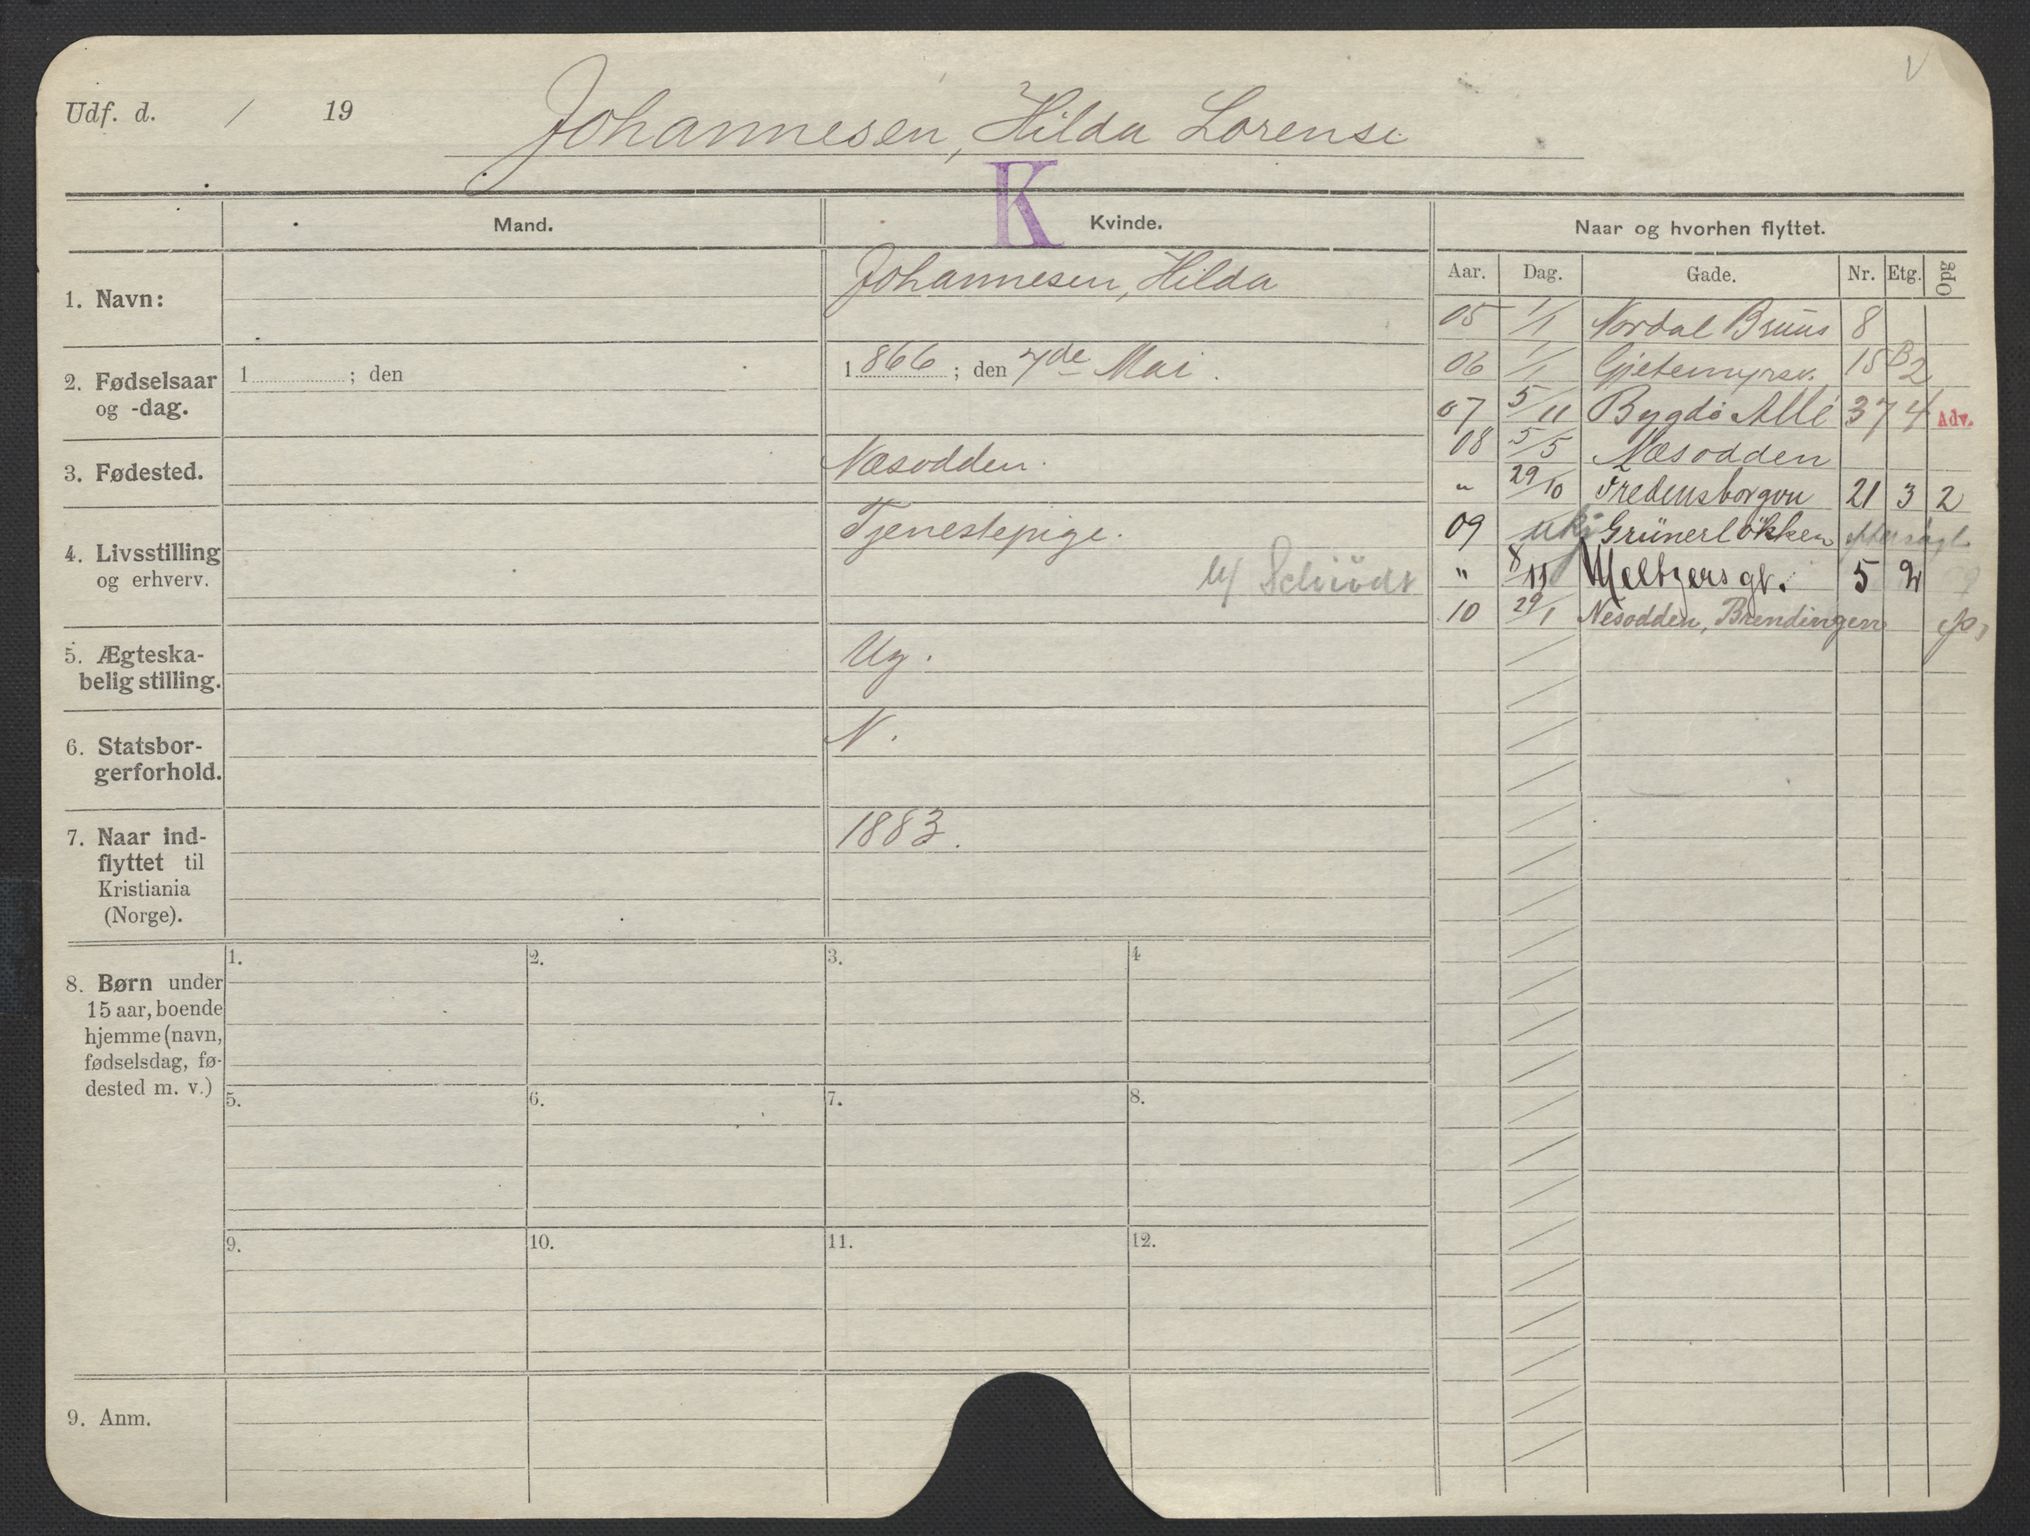 Udf. d. / 19
Johannesen, Hilda Lorense
K
Mand. Kvinde. Naar og hvorhen flyttet.
Aar. Dag. Gade. Nr. Etg. Opg
1. Navn: Johannesen, Hilda
2. Fødselsaar og -dag.
1 ; den
1866 ; den 7de Mai.
3. Fødested. Næsodden.
4. Livsstilling og erhverv. Tjenestepige.
5. Ægteska-
belig stilling. Ug.
6. Statsbor-
gerforhold. N.
7. Naar ind-
flyttet til
Kristiania
(Norge). 1883.
05 1/1 Nordal Bruns 8
06 1/1 Gjetemyrsv. 15 B 2
07 5/11 Bygdö Allé 37 4 Adv.
08 5/5 Næsodden
" 29/10 Fredensborgvn 21 3 2
09 Grünerløkken
" 8/11 Meltzersgt. 5 2
10 29/1 Nesodden, Brendingen
8. Børn under
15 aar, boende
hjemme (navn,
fødselsdag, fø-
dested m. v.)
1. 2. 3. 4
5. 6. 7. 8.
9. 10. 11. 12.
9. Anm.